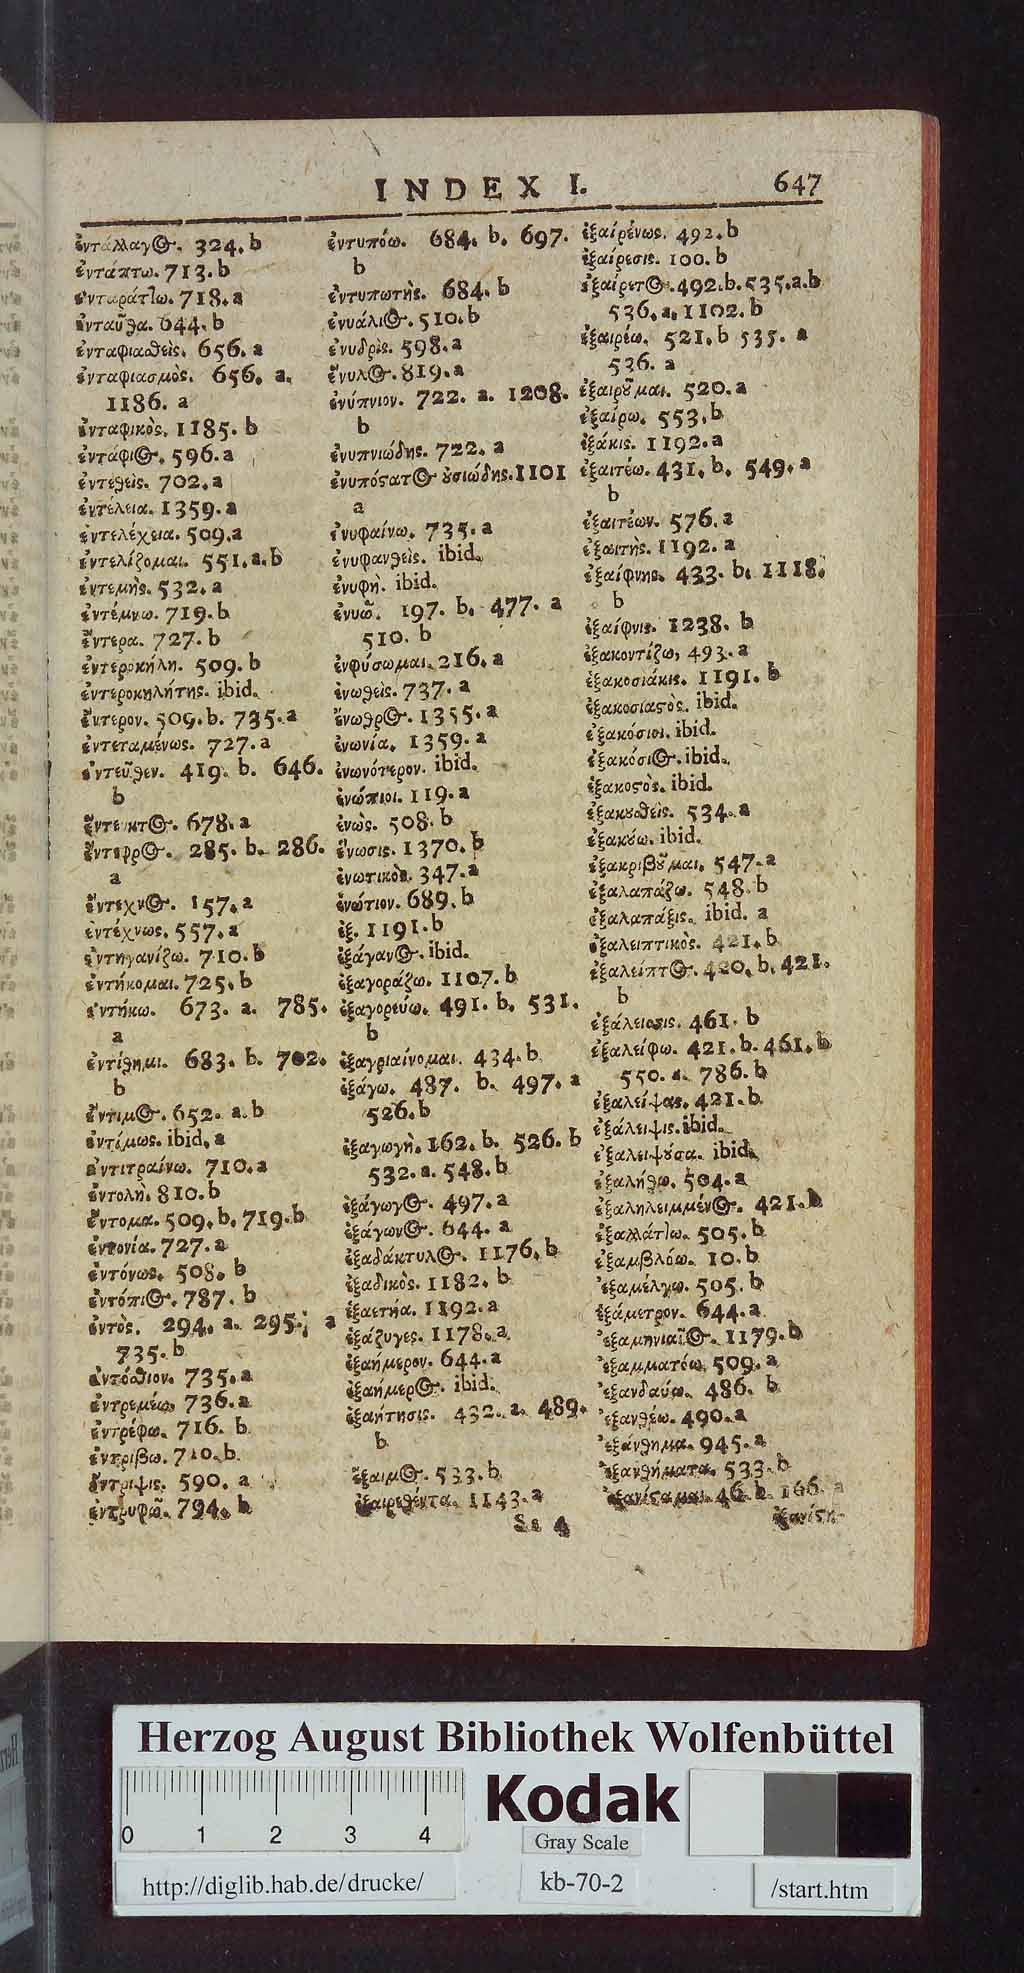 INDEX I. 647
ἐντάλλαγος. 324. b
ἐντάπτω. 713. b
ἐνταράττω. 718. a
ἐνταῦθα. 644. b
ἐνταφιασθεὶς. 656. a
ἐνταφιασμὸς. 656. a.
1186. a
ἐνταφικὸς. 1185. b
ἐντάφιος. 596. a
ἐντεθεὶς. 702. a
ἐντέλεια. 1359. a
ἐντελέχεια. 509. a
ἐντελίζομαι. 551. a. b
ἐντεμὴς. 532. a
ἐντέμνω. 719. b
ἔντερα. 727. b
ἐντεροκήλη. 509. b
ἐντεροκηλήτης. ibid.
ἔντερον. 509. b. 735. a
ἐντεταμένως. 727. a
ἐντεῦθεν. 419. b. 646.
b
ἔντευκτος. 678. a
ἔντεφρος. 285. b. 286.
a
ἔντεχνος. 157. a
ἐντέχνως. 557. a
ἐντηγανίζω. 710. b
ἐντήκομαι. 725. b
ἐντήκω. 673. a. 785.
a
ἐντίθημι. 683. b. 702.
b
ἔντιμος. 652. a. b
ἐντίμως. ibid. a
ἐντιτραίνω. 710. a
ἐντολὴ. 810. b
ἔντομα. 509. b. 719. b
ἐντονία. 727. a
ἐντόνως. 508. b
ἐντόπιος. 787. b
ἐντὸς. 294. a. 295. a
735. b
ἐντόσθιον. 735. a
ἐντρεμέω. 736. a
ἐντρέφω. 716. b
ἐντρίβω. 710. b
ἔντριψις. 590. a
ἐντρυφῶ. 794. b
ἐντυπόω. 684. b. 697.
b
ἐντυπωτὴς. 684. b
ἐνυάλιος. 510. b
ἐνυδρὶς. 598. a
ἔνυλος. 819. a
ἐνύπνιον. 722. a. 1208.
b
ἐνυπνιώδης. 722. a
ἐνυπόστατος οὐσιώδης. 1101
a
ἐνυφαίνω. 735. a
ἐνυφανθεὶς. ibid.
ἐνυφὴ. ibid.
ἐνυῶ. 197. b. 477. a
510. b
ἐνφύσωμαι. 216. a
ἐνωθεὶς. 737. a
ἔνωθρος. 1355. a
ἐνωνία. 1359. a
ἐνωνότερον. ibid.
ἐνώπιοι. 119. a
ἐνὼς. 508. b
ἕνωσις. 1370. b
ἑνωτικὸς. 347. a
ἐνώτιον. 689. b
ἐξ. 1191. b
ἐξάγανος. ibid.
ἐξαγοράζω. 1107. b
ἐξαγορεύω. 491. b. 531.
b
ἐξαγριαίνομαι. 434. b
ἐξάγω. 487. b. 497. a
526. b
ἐξαγωγὴ. 162. b. 526. b
532. a. 548. b
ἐξάγωγος. 497. a
ἑξάγωνος. 644. a
ἑξαδάκτυλος. 1176. b
ἑξαδικὸς. 1182. b
ἑξαετηία. 1192. a
ἑξάζυγες. 1178. a
ἑξαήμερον. 644. a
ἑξαήμερος. ibid.
ἐξαήτησις. 432. a. 489.
b
ἔξαιμος. 533. b
ἐξαιρεθέντα. 1143. a
Ss 4
ἐξαιρένως. 492. b
ἐξαίρεσις. 100. b
ἐξαίρετος. 492. b. 535. a. b
536. a. 1102. b
ἐξαιρέω. 521. b 535. a
536. a
ἐξαιροῦμαι. 520. a
ἐξαίρω. 553. b
ἑξάκις. 1192. a
ἐξαιτέω. 431. b. 549. a
b
ἐξαιτέων. 576. a
ἐξαιτὴς. 1192. a
ἐξαίφνης. 433. b. 1118.
b
ἐξαίφνις. 1238. b
ἐξακοντίζω, 493. a
ἑξακοσιάκις. 1191. b
ἑξακοσιαστὸς. ibid.
ἑξακόσιοι. ibid.
ἑξακόσιος. ibid.
ἑξακοστὸς. ibid.
ἐξακουσθεὶς. 534. a
ἐξακούω. ibid.
ἐξακριβοῦμαι. 547. a
ἐξαλαπάζω. 548. b
ἐξαλαπάξις. ibid. a
ἐξαλειπτικὸς. 421. b
ἐξαλείπτος. 420. b. 421.
b
ἐξάλειοσις. 461. b
ἐξαλείφω. 421. b. 461. b
550. a. 786. b
ἐξαλείψας. 421. b
ἐξάλειψις. ibid.
ἐξαλειψοῦσα. ibid.
ἐξαλήθω. 504. a
ἐξαληλειμμένος. 421. b
ἐξαλλάττω. 505. b
ἐξαμβλόω. 10. b
ἐξαμέλγω. 505. b
ἑξάμετρον. 644. a
ἑξαμηνιαῖος. 1179. b
ἐξαμματόω. 509. a
ἐξανδαύω. 486. b
ἐξανθέω. 490. a
ἐξάνθημα. 945. a
ἐξανθήματα. 533. b
ἐξανίσταμαι. 46. b. 166. a
ἐξανίστη-
Herzog August Bibliothek Wolfenbüttel
0 1 2 3 4
Kodak
Gray Scale
http://diglib.hab.de/drucke/
kb-70-2
/start.htm